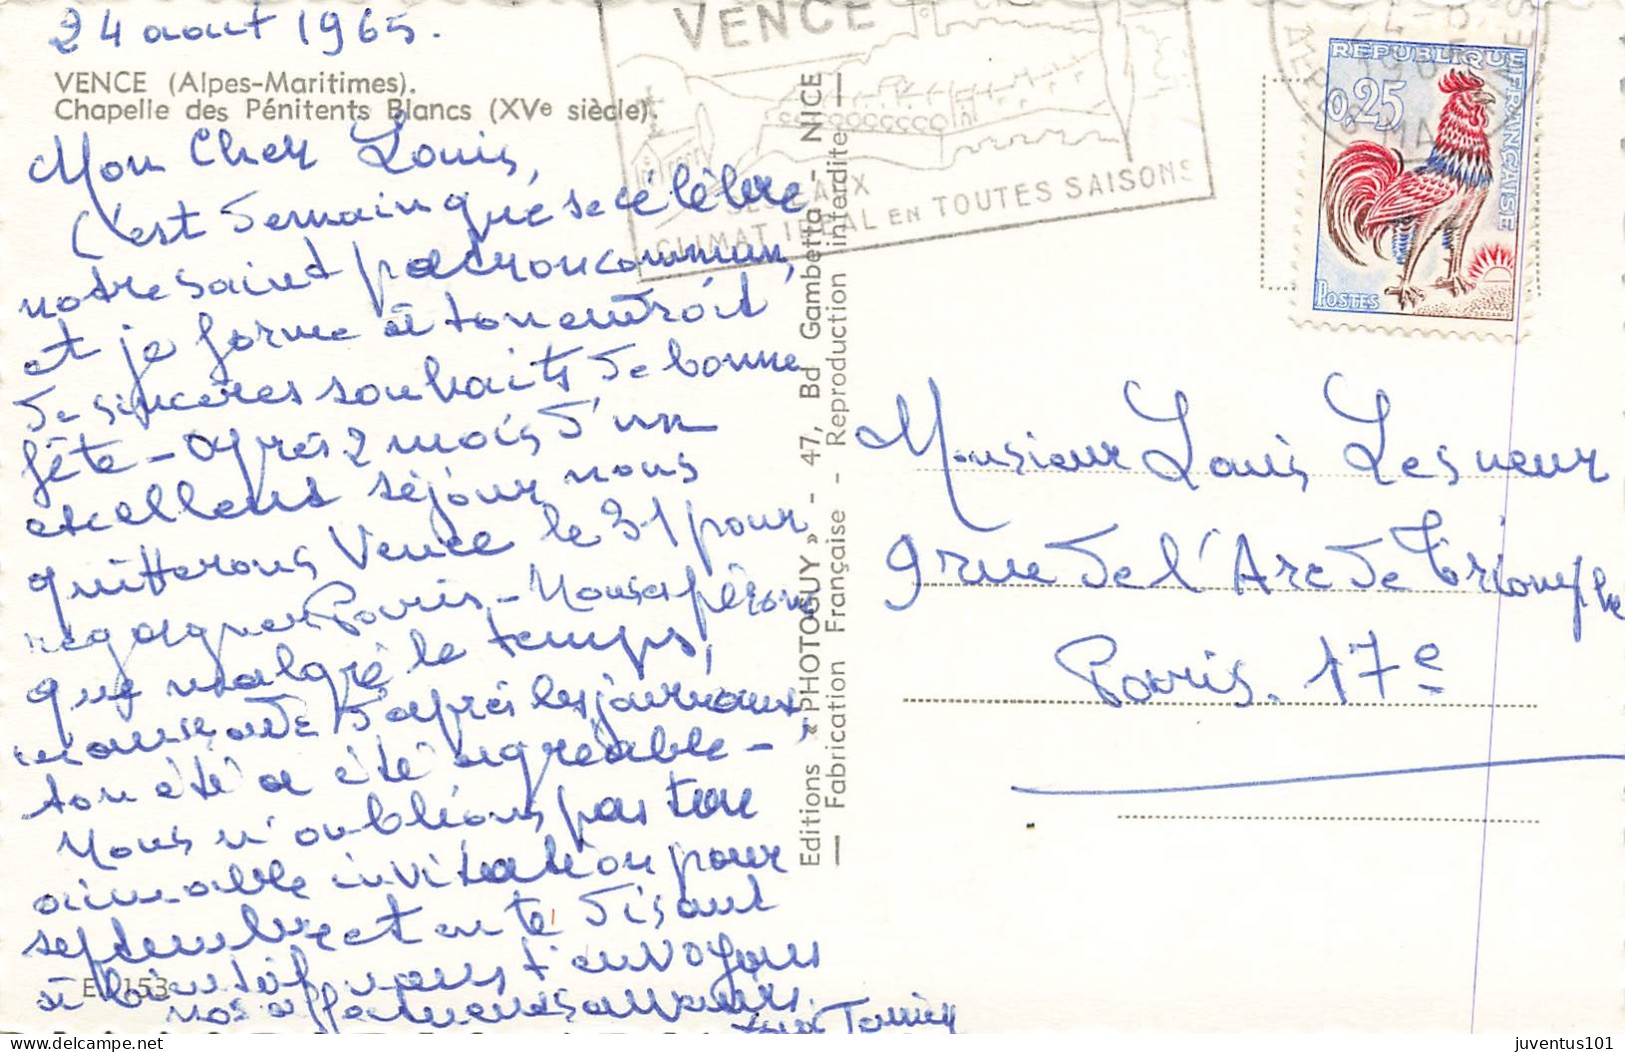 24 aout 1965.
VENCE (Alpes-Maritimes).
Chapelle des Pénitents Blancs (XVe siècle).
Mon Cher Louis,
C'est demain que se célèbre
notre saint patron commun,
et je forme à ton endroit
de sincères souhaits de bonne
fête - après 2 mois d'un
excellent séjour nous
quitterons Vence le 31 pour
regagner Paris - Nous espérons
que malgré le temps,
maussade d'après les journaux,
ton été a été agréable -
Nous n'oublions pas ton
aimable invitation pour
septembre et en te disant
à bientôt nous t'envoyons
nos affectueux
E 153
VENCE
SES EAUX
CLIMAT IDEAL EN TOUTES SAISONS
REPUBLIQUE FRANÇAISE
0,25
POSTES
DECARIS
Editions « PHOTOGUY » - 47, Bd Gambetta - NICE
— Fabrication Française - Reproduction interdite —
Monsieur Louis Lesueur
9 rue de l'Arc de Triomphe
Paris. 17e
juventus101